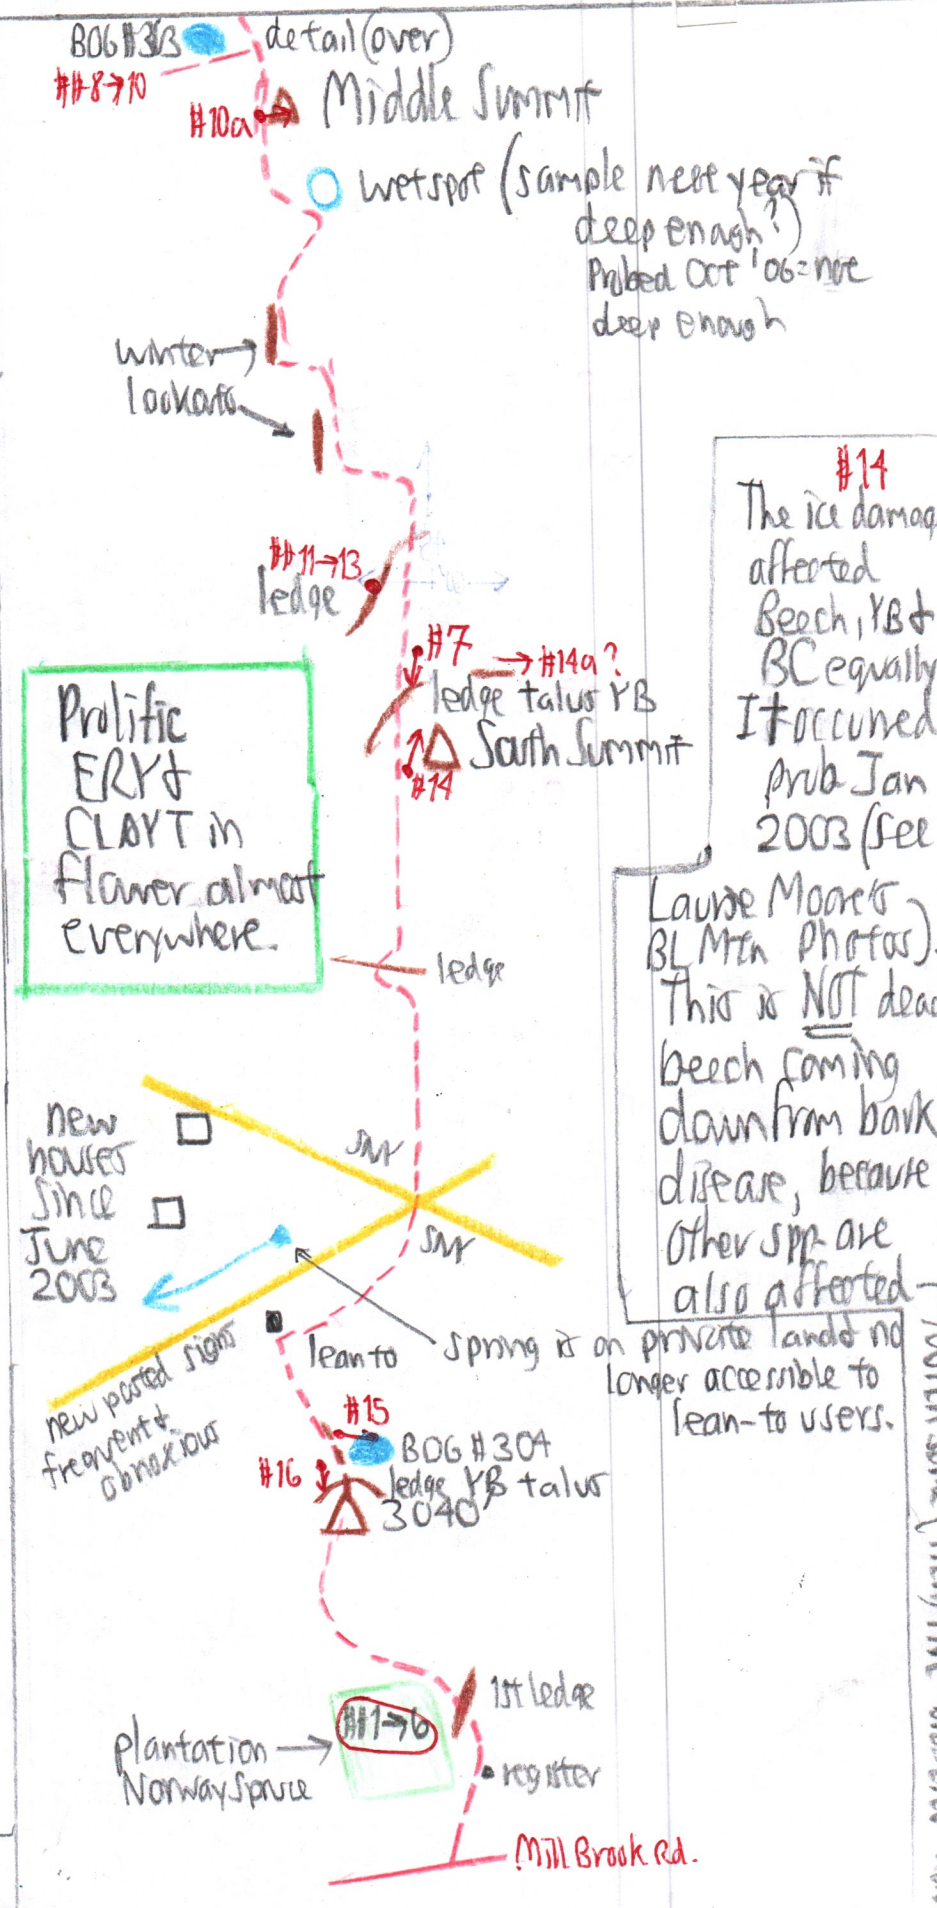 BOG #303
detail (over)
##8→10
#10a
Middle Summit
wetspot (sample next year if
deep enagh?)
Probed Oct '06=not
deep enough
winter
lookouts
##11→13
ledge
#7
→ #14a?
ledge talus YB
South Summit
#14
Prolific
ERY &
CLAYT in
flower almost
everywhere.
ledge
#14
The ice damag
affected
Beech, YB &
BC equally
It occurred
prob Jan
2003 (See
Laurie Moore's
BL Mtn Photos).
This is NOT dead
beech coming
down from bark
disease, because
other spp are
also affected-
new
houses
since
June
2003
SMY
SMY
new posted signs
frequent &
obnoxious
lean to
spring is on private land & no
longer accessible to
lean-to users.
#15
BOG #304
#16
ledge YB talus
3040'
1st ledge
##1→6
plantation
Norway Spruce
register
Mill Brook Rd.